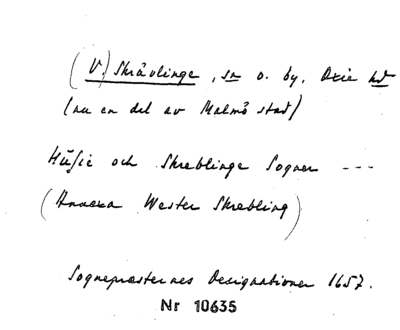 (V.) Skrävlinge, sn o. by, Oxie hd
(nu en del av Malmö stad)
Hüsie och Skreblinge Sogner ---
(Annexa Wester Skrebling)
Sognepræsternes Designationer 1657.
Nr 10635